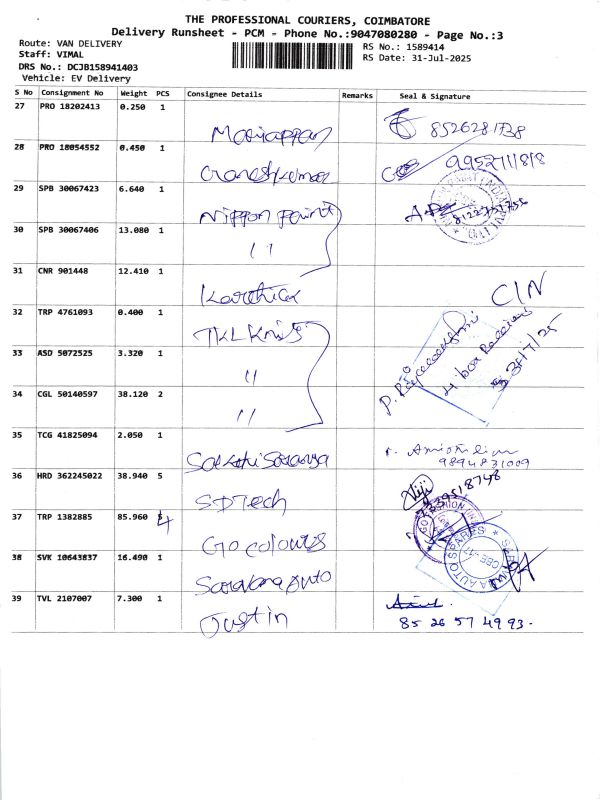 THE PROFESSIONAL COURIERS, COIMBATORE
Delivery Runsheet - PCM - Phone No.:9047080280 - Page No.:3
Route: VAN DELIVERY
Staff: VIMAL
DRS No.: DCJB158941403
Vehicle: EV Delivery
RS No.: 1589414
RS Date: 31-Jul-2025
S No Consignment No Weight PCS Consignee Details Remarks Seal & Signature
27 PRO 18202413 0.250 1 Mariappan 8526281738
28 PRO 18054552 0.450 1 Ganeshkumar 9952711818
29 SPB 30067423 6.640 1 Nippon Paint
30 SPB 30067406 13.080 1 ''
31 CNR 901448 12.410 1 Karthick
32 TRP 4761093 0.400 1 TKL Knits CIN
33 ASD 5072525 3.320 1 '' 4 box Received
34 CGL 50140597 38.120 2 '' 31/7/25
35 TCG 41825094 2.050 1 Sakthi Saranya 9894831009
36 HRD 362245022 38.940 5 SDTech
37 TRP 1382885 85.960 4 Go colours
38 SVK 10643837 16.490 1 Saravana Auto
39 TVL 2107007 7.300 1 Justin 8526574993.